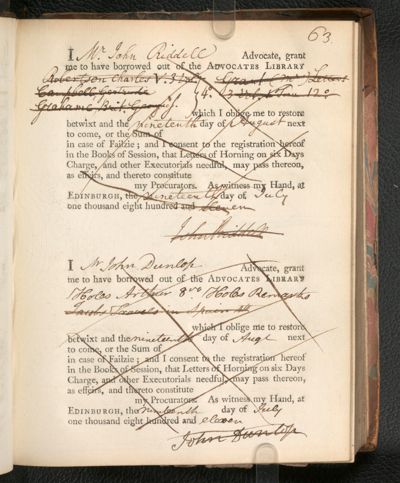 63
I Mr John Riddell Advocate, grant
me to have borrowed out of the ADVOCATES LIBRARY
Robertson Charles V. 3 Vols Grant Mrs Letters
Campbell Gertrude 4o 3 Vols 12o
Grahame Brit. Georg.
which I oblige me to restore
betwixt and the nineteenth day of August next
to come, or the Sum of
in case of Failzie; and I consent to the registration hereof
in the Books of Session, that Letters of Horning on six Days
Charge, and other Executorials needful, may pass thereon,
as effeirs, and thereto constitute
my Procurators. As witness my Hand, at
EDINBURGH, the nineteenth day of July
one thousand eight hundred and eleven
John Riddell
I Mr John Dunlop Advocate, grant
me to have borrowed out of the ADVOCATES LIBRARY
8vo Remarks
Travels in Spain
which I oblige me to restore
betwixt and the nineteenth day of Augt next
to come, or the Sum of
in case of Failzie; and I consent to the registration hereof
in the Books of Session, that Letters of Horning on six Days
Charge, and other Executorials needful, may pass thereon,
as effeirs, and thereto constitute
my Procurators. As witness my Hand, at
EDINBURGH, the nineteenth day of July
one thousand eight hundred and eleven
John Dunlop